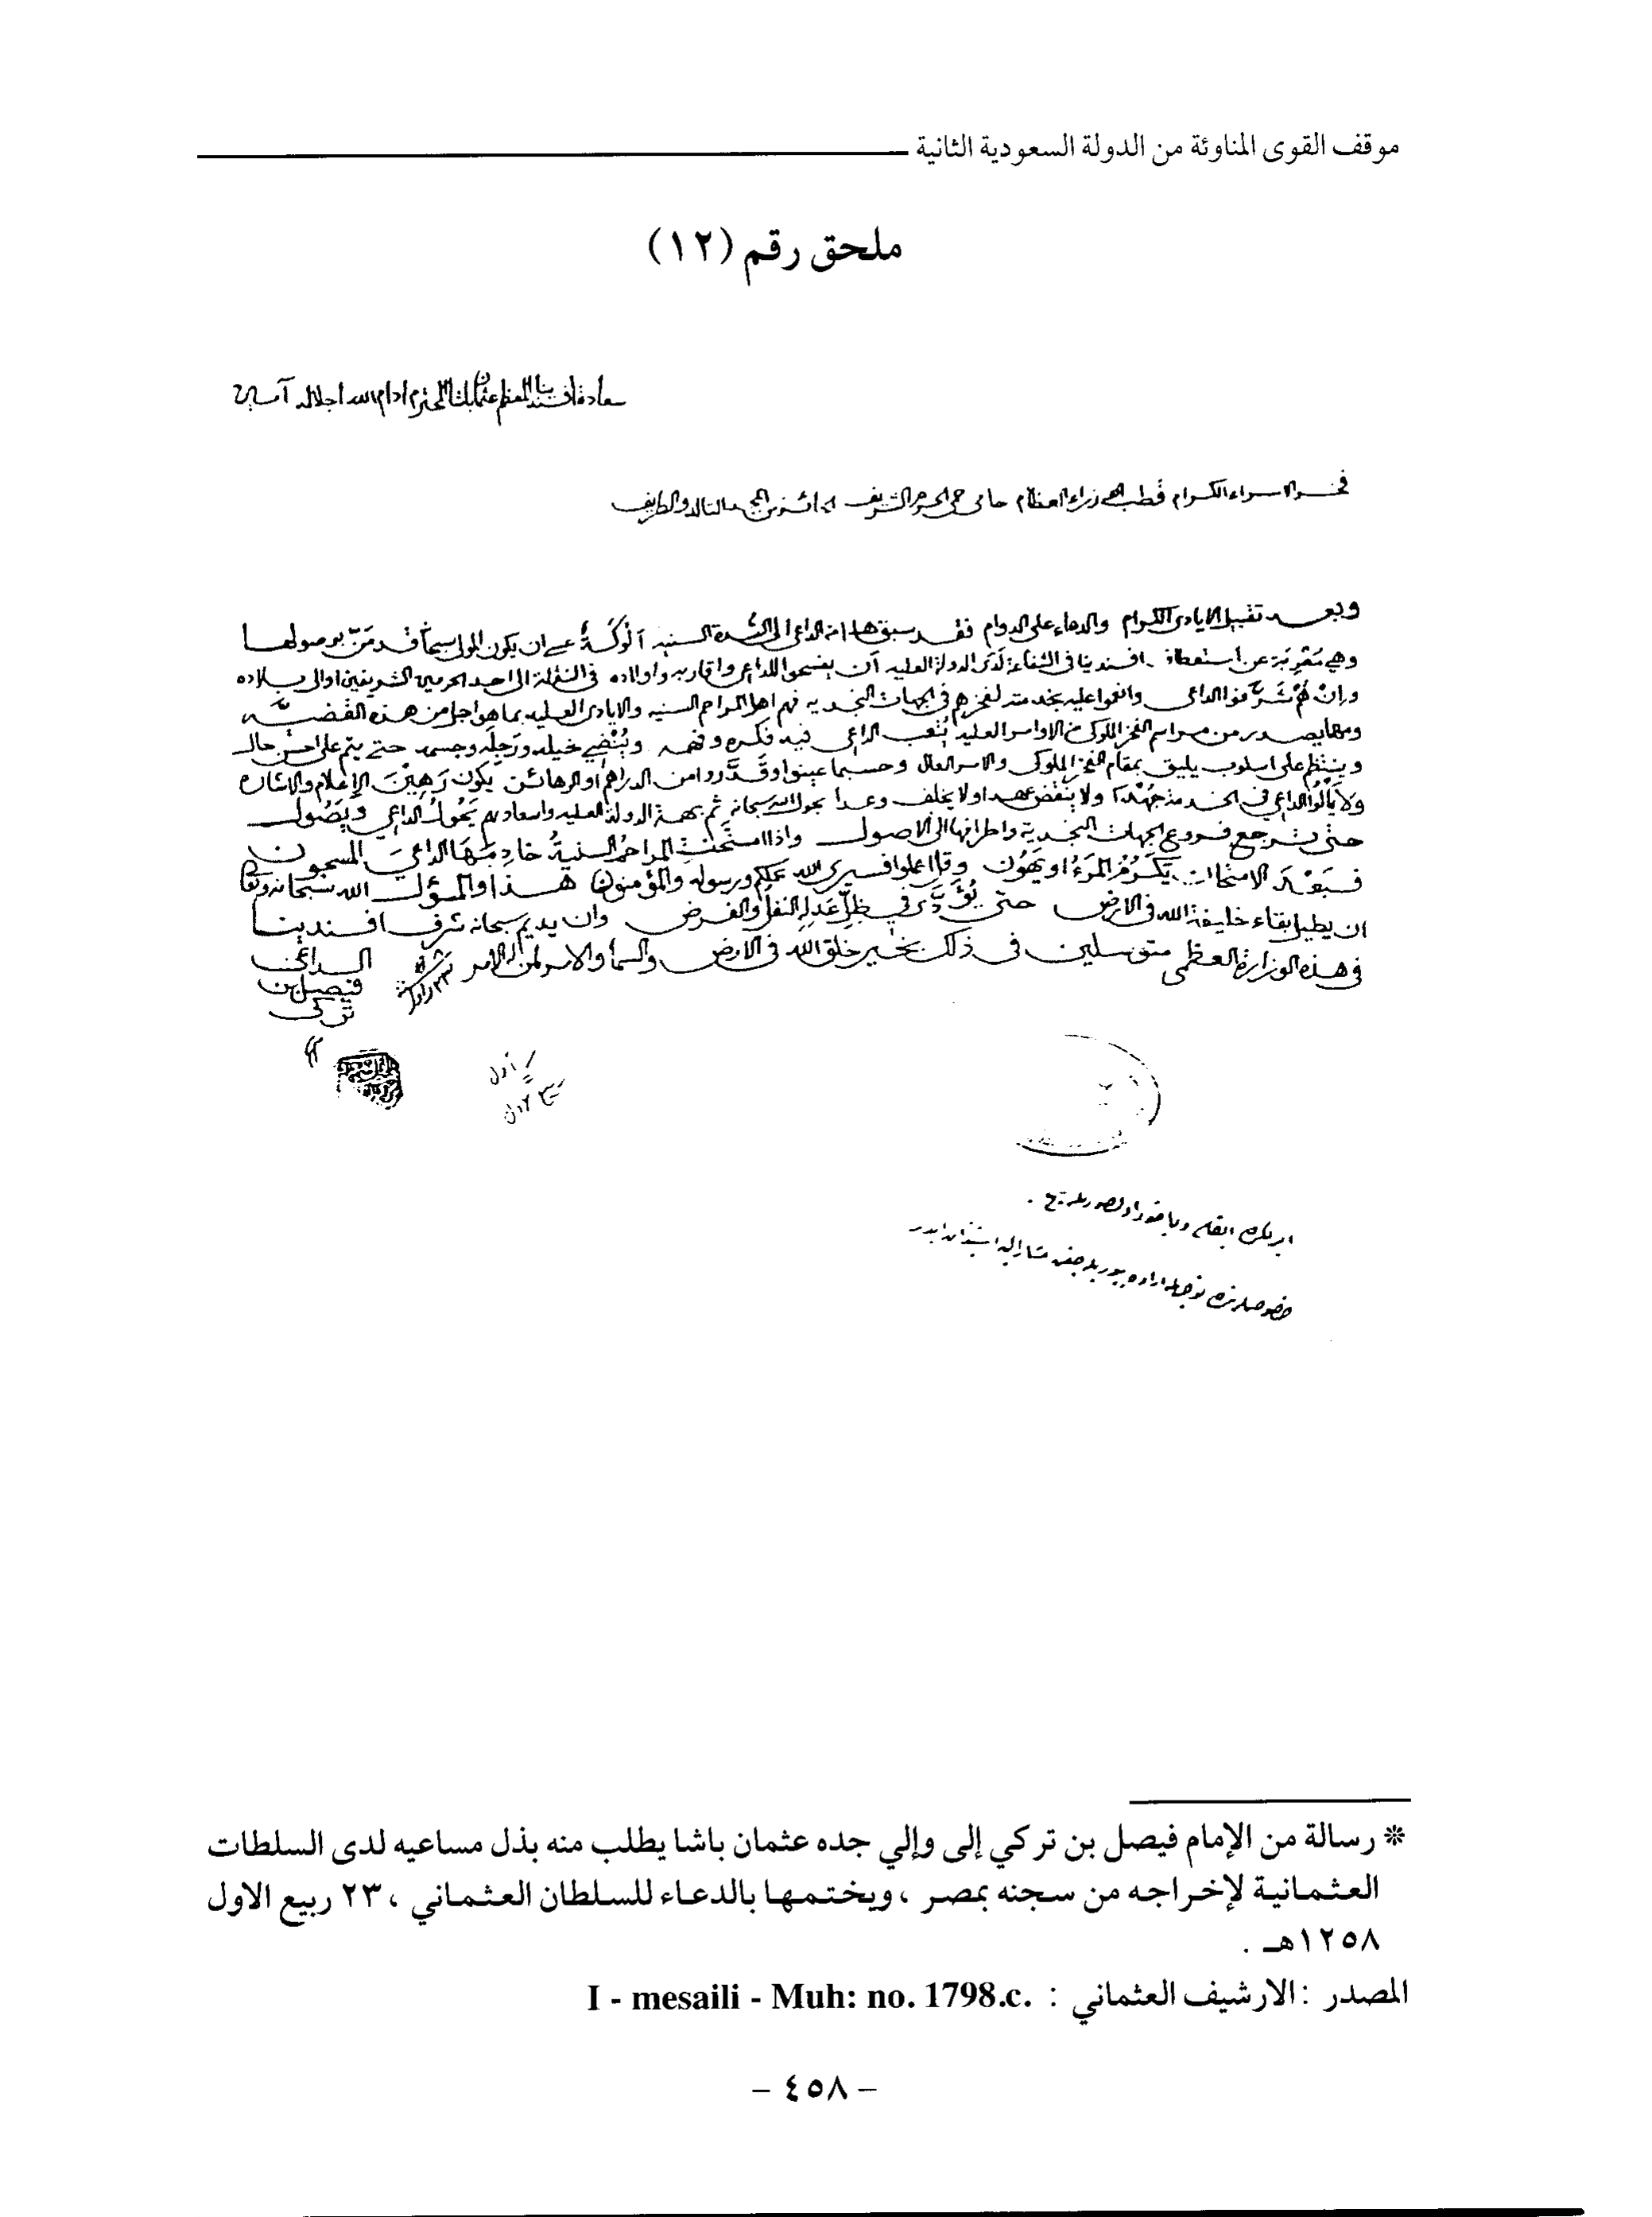 موقف القوى المناوئة من الدولة السعودية الثانية
ملحق رقم (١٢)
سعادة افندينا المعظم عثمان باشا المحترم ادام الله اجلاله آمين
فخر الامراء الكرام قطب الوزراء العظام حامى حمى الحرم الشريف الحائز من المجد التالد والطريف
وبعد تقبيل الايادى الكرام والدعاء على الدوام فقد سبق هذا من الداعى الى السدة السنيه ألوكة عسى ان يكون المولى سبحانه قد مَنّ بوصولها
وهي مُعْرِبَة عن استعطاف افندينا فى الشفاعة لَدَى الدولة العليه أن يفسحوا للداعى واقاربه واولاده فى النقلة الى احد الحرمين الشريفين اوالى بلاده
وإنْ هُمْ شَرَّفوا الداعى وانعموا عليه بخدمة لفخرهم فى الجهات النجديه فهم اهل المراحم السنيه والايادى العليه بما هو اجل من هذه القضيّه
ومهما يصدر من مراسم الفخر الملوكى من الاوامر العليه يُتعب الداعى فيه فكره وفهمه ويُنْضِي خيله ورَجِلَه وجسمه حتى يتم على احسن حال
وينتظم على اسلوب يليق بمقام الفخر الملوكى والامر العال وحسبما عينوا وقَدَّروا من الدراهم او الرهائن يكون رَهِينَ الإعلام والاشاره
ولا يَأْلُوا الداعى فى الخدمة جُهْدًا ولا ينقض عهدا ولا يخلف وعدا بحول الله سبحانه ثم بهمة الدولة العليه واسعادهم يَحُولُ الداعى ويَصُول
حتى ترجع فروع الجهات النجدية واطرافها الى الاصول واذا امتَحَنت المراحمُ السنيةُ خادِمَهَا الداعيَ المسجون
فبَعْدَ الامتحان يُكرَمُ المرءُ او يهون وقل اعملوا فسيرى الله عملكم ورسوله والمؤمنون هذا والمسؤل الله سبحانه وتعالى
ان يطيل بقاء خليفة الله فى الارض حتى يُؤَدَّى في ظِلّ عَدلِهِ النفل والفرض وان يديم سبحانه شرف افندينا
فى هذه الوزارة العظمى متوسلين فى ذلك بخير خلق الله فى الارض والسما والامر لمن له الامر
الداعى
فيصل بن
تركى
* رسالة من الإمام فيصل بن تركي إلى وإلي جده عثمان باشا يطلب منه بذل مساعيه لدى السلطات
العثمانية لإخراجه من سجنه بمصر ، ويختمها بالدعاء للسلطان العثماني ، ٢٣ ربيع الاول
١٢٥٨هـ .
المصدر : الارشيف العثماني : I - mesaili - Muh: no. 1798.c.
- ٤٥٨ -